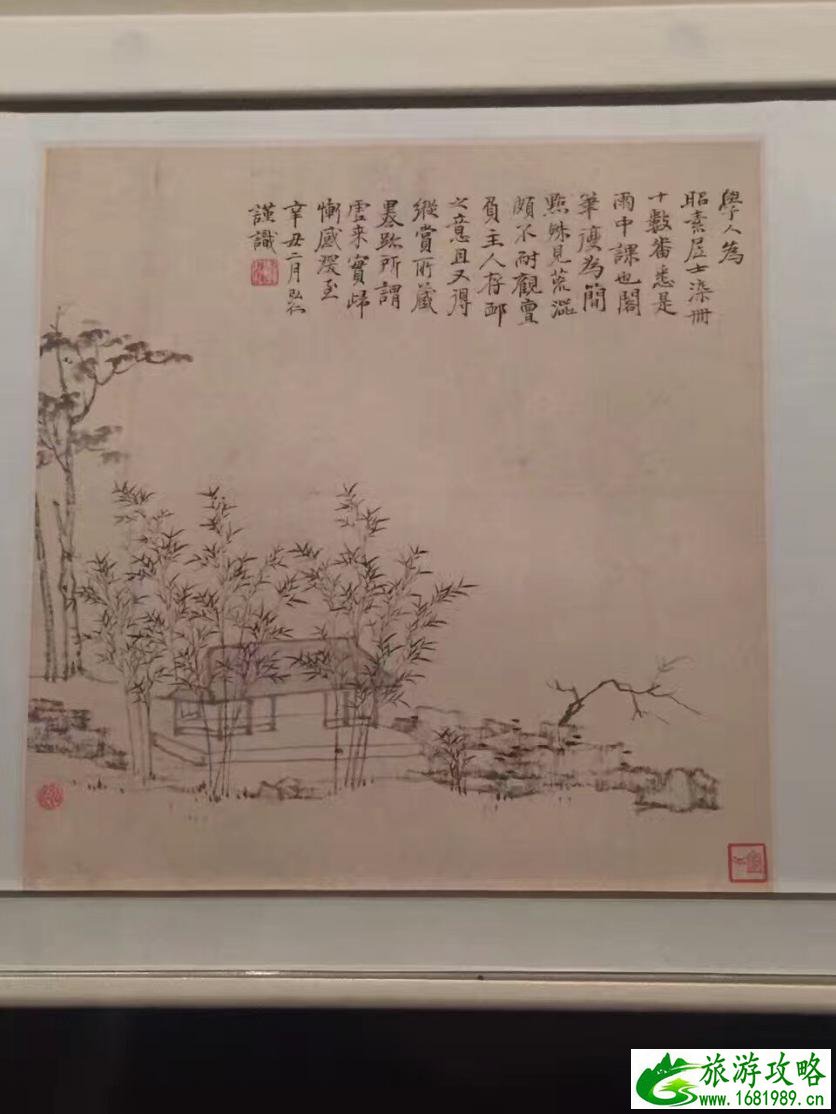 學人為
昭素居士染冊
十數番悉是
雨中課也閣
筆復為簡
點殊見荒澀
頗不耐觀亶
負主人存邮
之意且又得
縱賞所藏
墨跡所謂
虛來實歸
慚感深至
辛丑二月弘仁
謹識
旅游攻略
www.1681989.cn